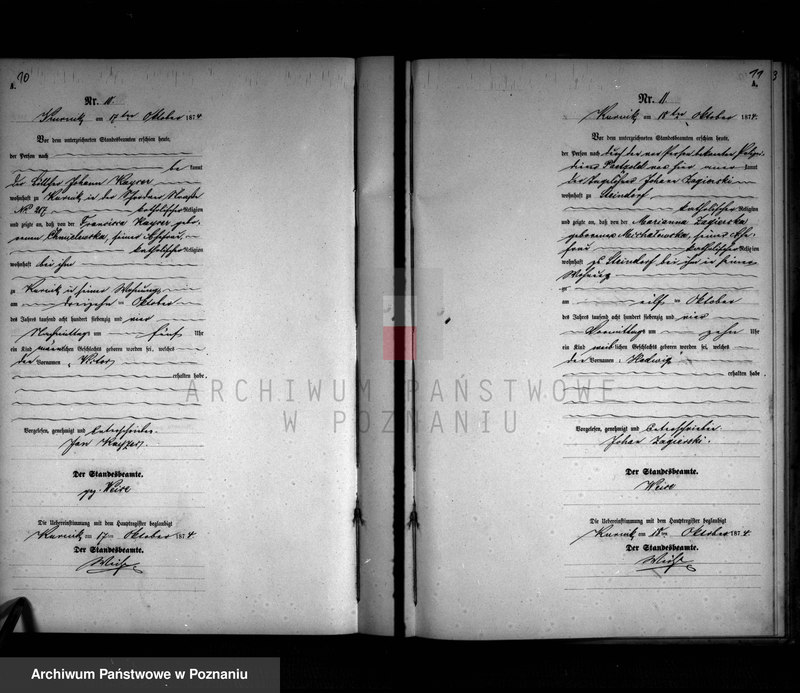 10
A.
Nr. 10.
Kurnik am 17ten Oktober 1874
Vor dem unterzeichneten Standesbeamten erschien heute,
der Person nach
be kannt
der Johann Kayser
wohnhaft zu Kurnik in der Schrodaer Straße
No. 217 katholischer Religion
und zeigte an, daß von der Francisca Kayser gebo-
renen Chmielewska, seiner Ehefrau
katholischer Religion
wohnhaft bei ihm
zu Kurnik in seiner Wohnung
am dreizehnten Oktober
des Jahres tausend acht hundert siebenzig und vier
Nachmittags um fünf Uhr
ein Kind männlichen Geschlechts geboren worden sei, welches
den Vornamen Victor
erhalten habe.
Vorgelesen, genehmigt und unterschrieben
Jan Kayzer.
Der Standesbeamte.
gez. Weise
Die Uebereinstimmung mit dem Hauptregister beglaubigt
Kurnik am 17ten Oktober 1874
Der Standesbeamte.
Weise
11
3
A.
Nr. 11
Kurnik am 18ten Oktober 1874.
Vor dem unterzeichneten Standesbeamten erschien heute,
der Person nach durch den von Person bekannten
von hier
der Johann Zagierski
wohnhaft zu Steindorf
katholischer Religion
und zeigte an, daß von der Marianna Zagierska
geborenen Michalowska, seiner Ehe-
frau katholischer Religion
wohnhaft zu Steindorf bei ihm in seiner
Wohnung
zu
am eilften Oktober
des Jahres tausend acht hundert siebenzig und vier
Vormittags um zehn Uhr
ein Kind weiblichen Geschlechts geboren worden sei, welches
den Vornamen Hedwig
erhalten habe.
Vorgelesen, genehmigt und unterschrieben
Johan Zagierski.
Der Standesbeamte.
Weise
Die Uebereinstimmung mit dem Hauptregister beglaubigt
Kurnik am 18ten Oktober 1874.
Der Standesbeamte.
Weise
ARCHIWUM PAŃSTWOWE
W POZNANIU
Archiwum Państwowe w Poznaniu